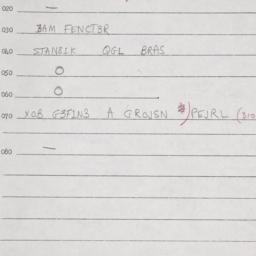 020 —
030 BAM FENCTBR
040 STANBIK QGL BRAS
050 O
060 O
070 YOB G3FIN3 A GROJSN PEJRL
080 —